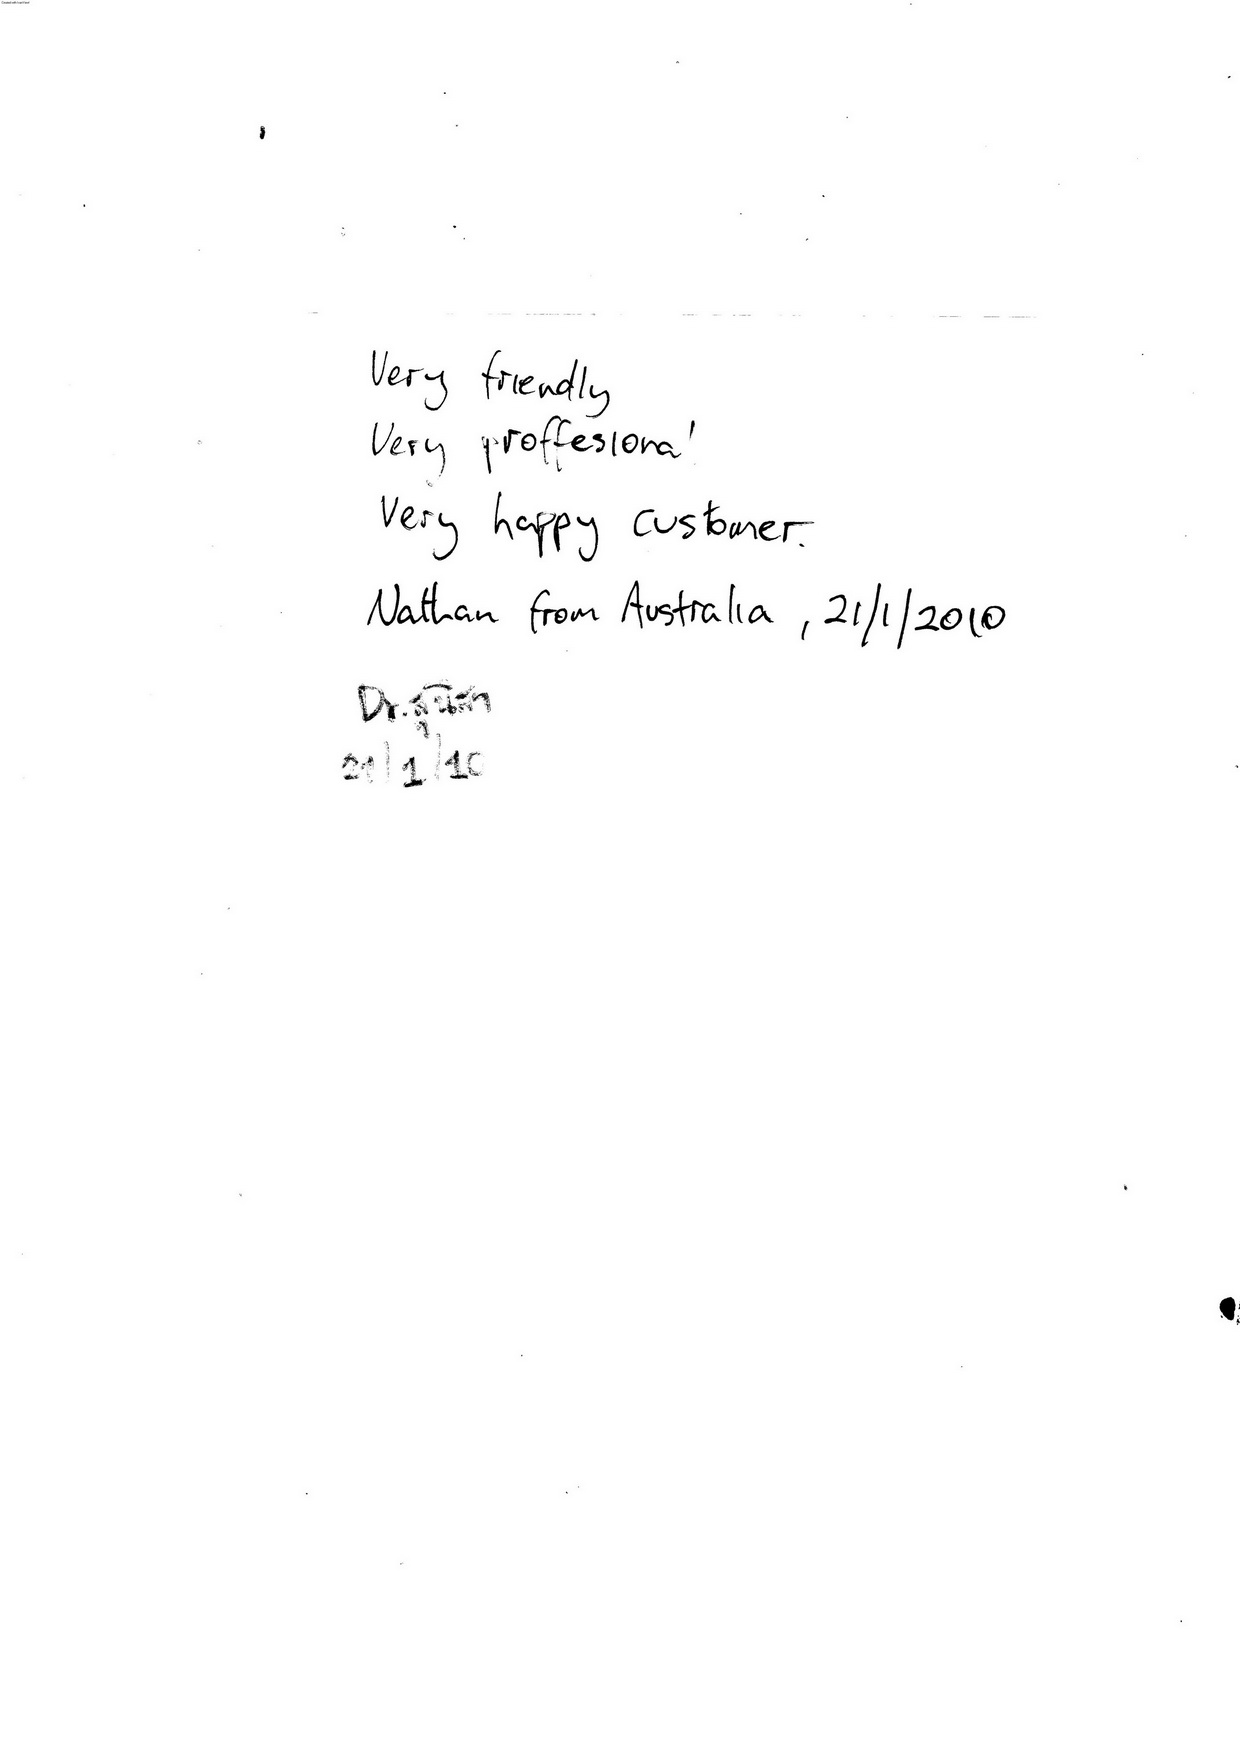 Very friendly
Very proffesional
Very happy customer.
Nathan from Australia, 21/1/2010
Dr. สุนิสา
21/1/10